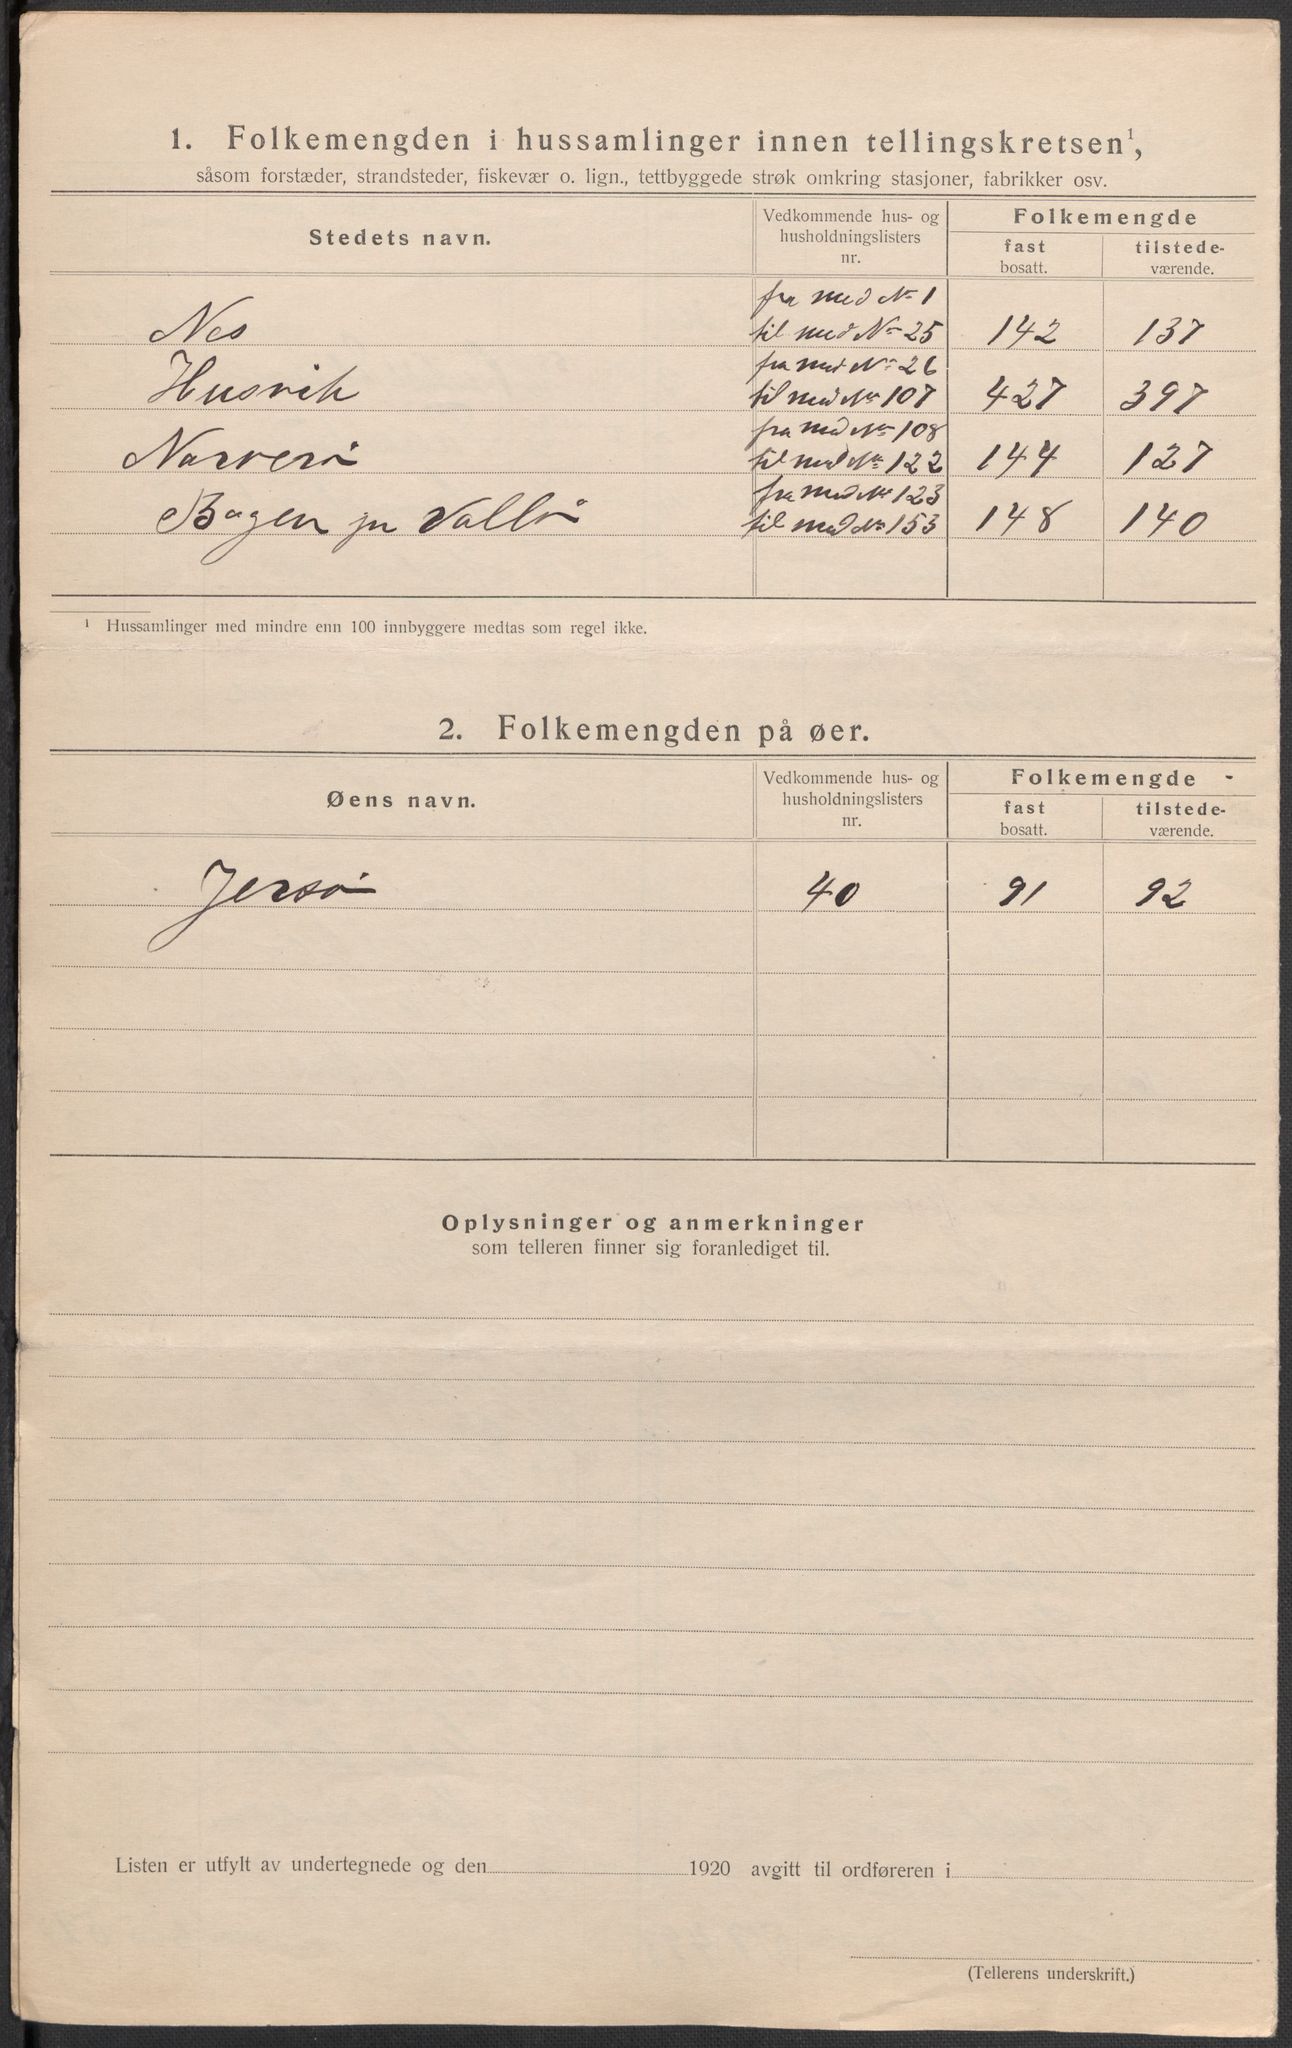 1. Folkemengden i hussamlinger innen tellingskretsen¹,
såsom forstæder, strandsteder, fiskevær o. lign., tettbyggede strøk omkring stasjoner, fabrikker osv.
Stedets navn.
Vedkommende hus- og
husholdningslisters
nr.
Folkemengde
fast
bosatt.
tilstede-
værende.
fra med № 1
Nes til med № 25 142 137
fra med № 26
Husvik til med № 107 427 397
fra med № 108
Narverö til med № 122 144 127
fra med № 123
Bogen pr Vallö til med № 153 148 140
¹ Hussamlinger med mindre enn 100 innbyggere medtas som regel ikke.
2. Folkemengden på øer.
Øens navn.
Vedkommende hus- og
husholdningslisters
nr.
Folkemengde
fast
bosatt.
tilstede-
værende.
Jersö 40 91 92
Oplysninger og anmerkninger
som telleren finner sig foranlediget til.
Listen er utfylt av undertegnede og den 1920 avgitt til ordføreren i
(Tellerens underskrift.)